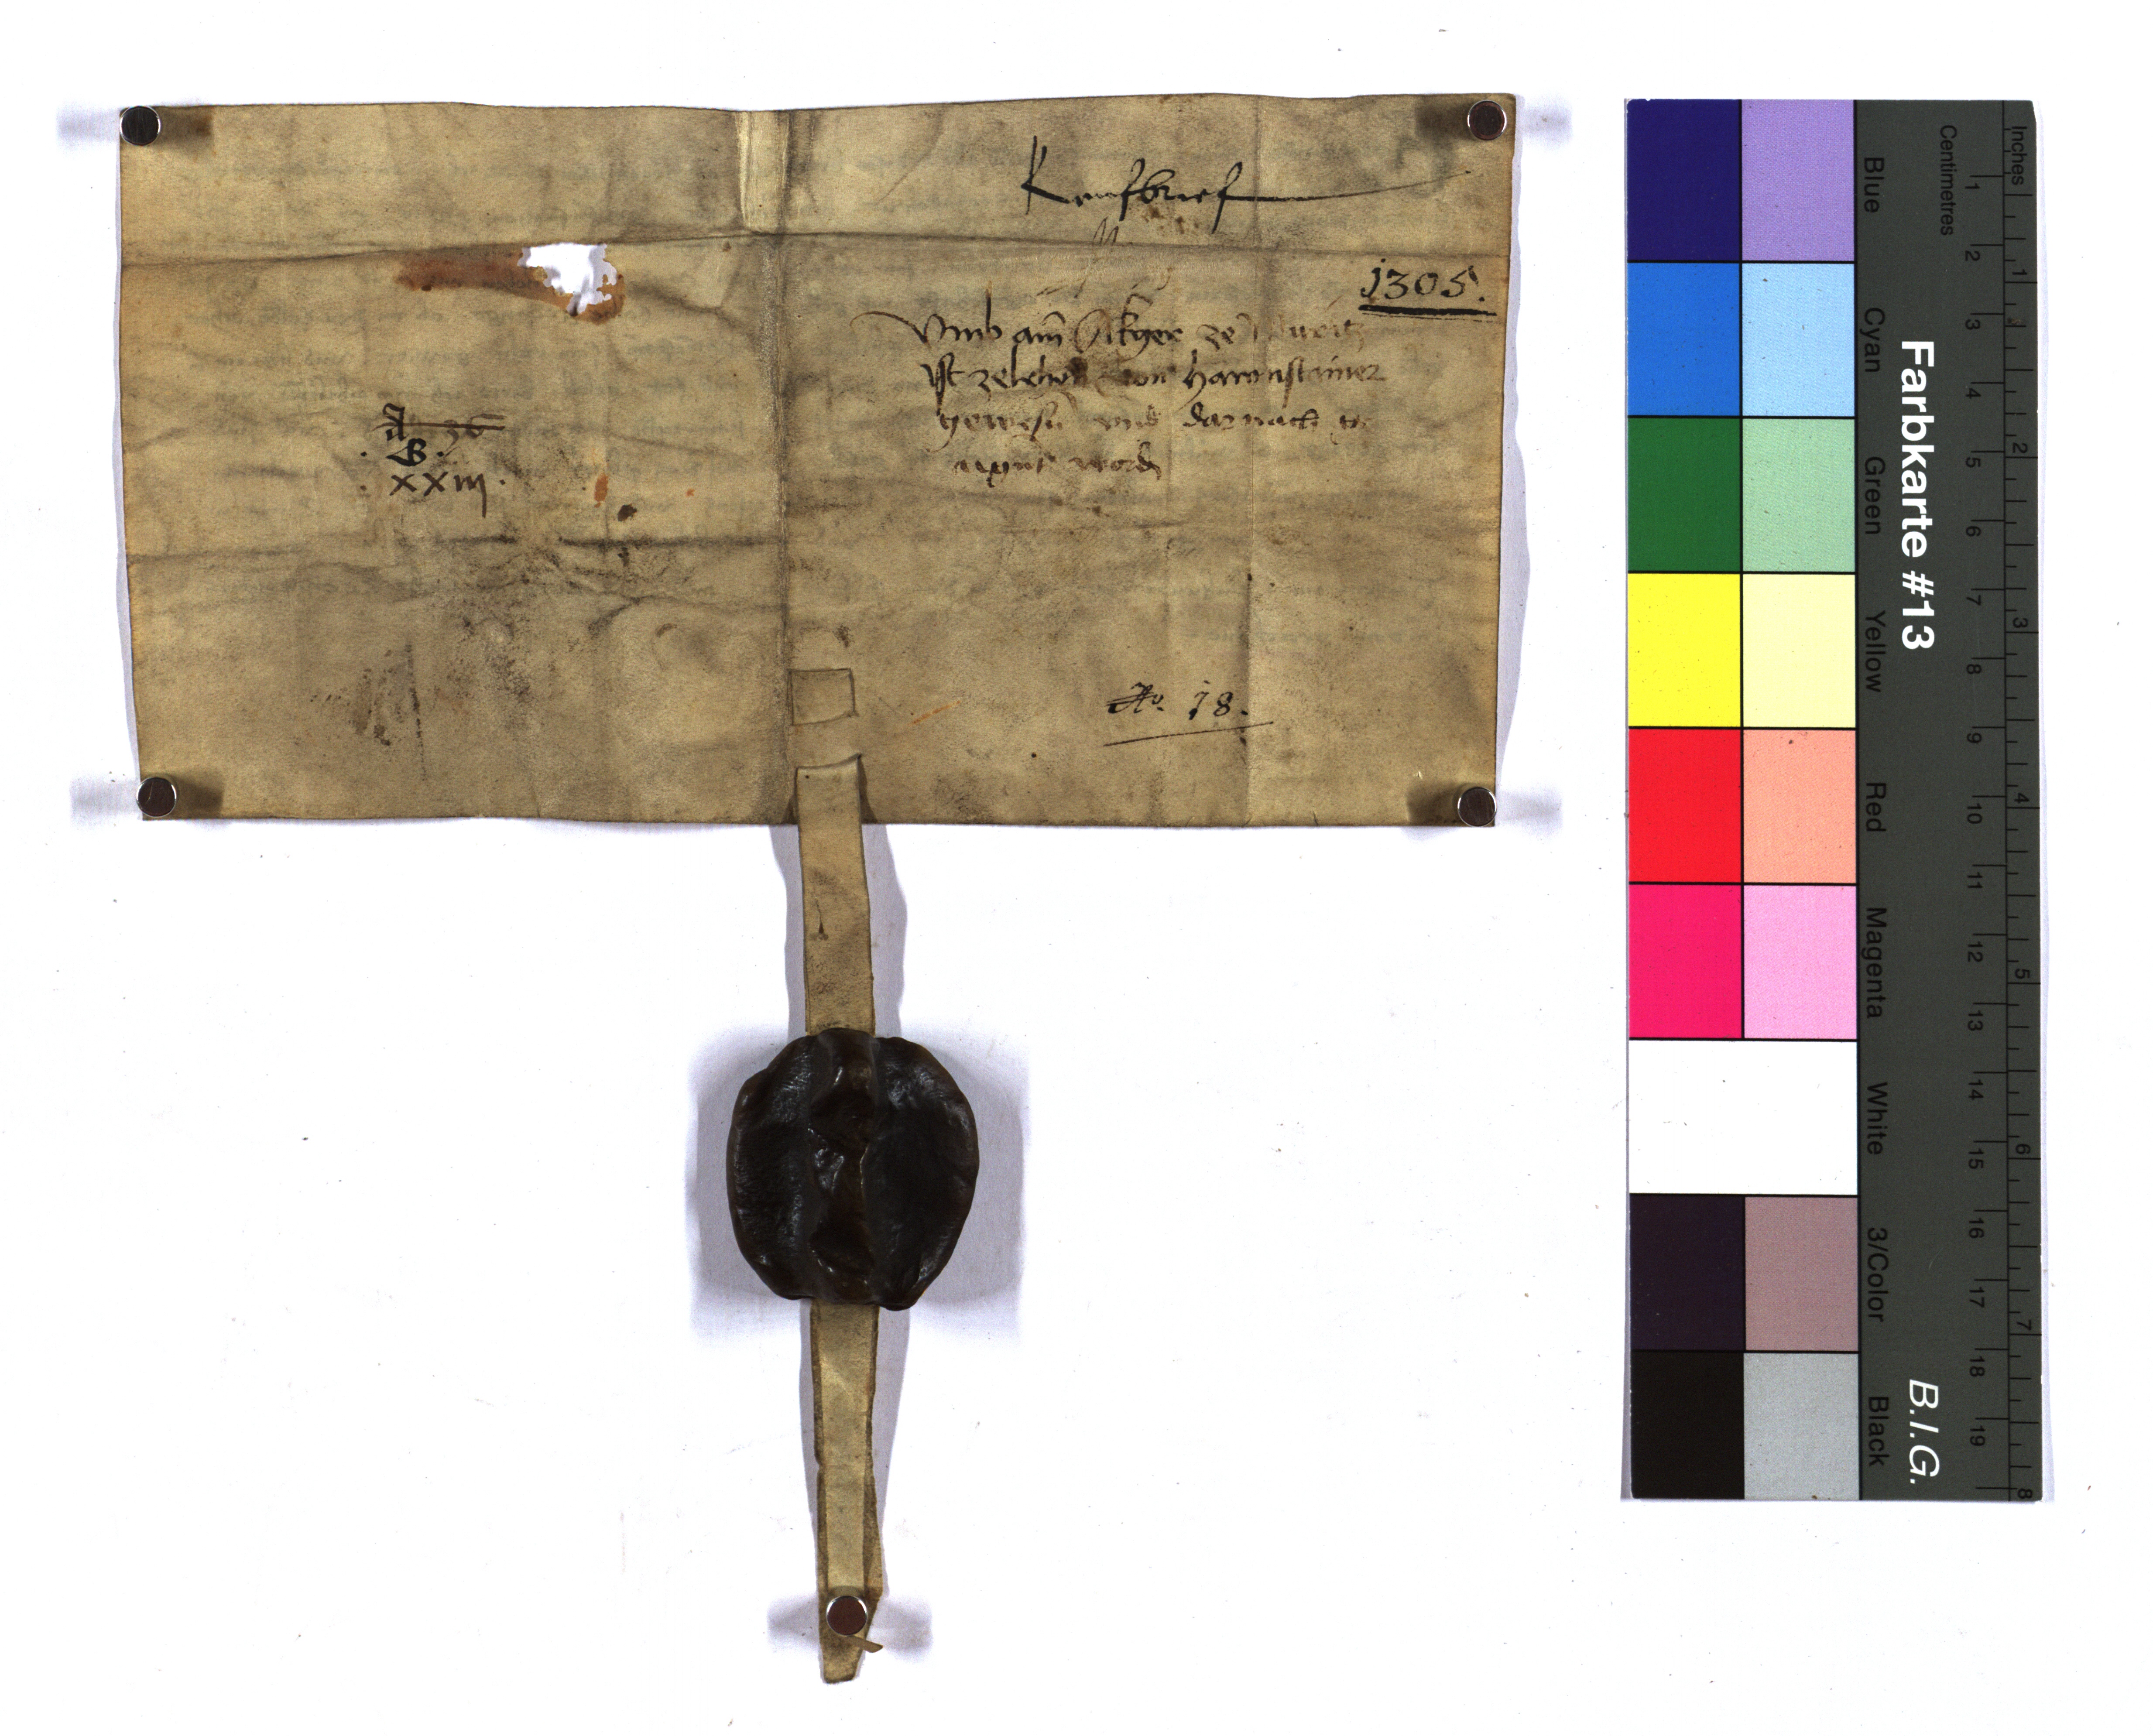 Kaufbrief
1305.
Vmb ain Akher ze
Ist zelehen von Harmstainer
gewesn vnd darnach
aigent wordn
A 36
. B .
. XXIII .
No. 18.
Farbkarte #13
B.I.G.
Blue
Cyan
Green
Yellow
Red
Magenta
White
3/Color
Black
Centimetres
1 2 3 4 5 6 7 8 9 10 11 12 13 14 15 16 17 18 19
Inches
1 2 3 4 5 6 7 8